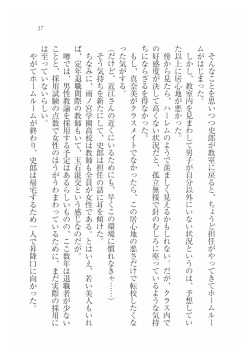 27
そんなことを思いつつ史郎が教室に戻ると、ちょうど担任がやってきてホームルー
ムがはじまった。
しかし、教室内を見まわして男子が自分以外にいない状況というのは、予想してい
た以上に居心地が悪かった。
傍から見たら、ハーレムのようで羨ましく見えるかもしれない。だが、クラス内で
の好感度が決して高くない状況だと、孤立無援で針のむしろに座っているような気持
ちにならざるを得なかった。
もし、真奈美がクラスメイトでなかったら、この居心地の悪さだけで転校したくな
った気がする。
（だけど、近江さんの近くにいるためにも、早くこの環境に慣れなきゃ……）
という気持ちを新たにして、史郎は担任の話に耳を傾けた。
ちなみに、雨ノ宮学園高校は教師も全員が女性である。とはいえ、若い美人もいれ
ば、定年退職間際の教師もいて、玉石混交という感じなのだが。
噂では、男性教諭を採用する予定はあるらしいものの、ここ数年は退職者が少ない
ことと、採用試験の点数で女性のほうがうわまわっているために、まだ実際の採用に
は至っていないらしい。
やがてホームルームが終わり、史郎は帰宅するため一人で昇降口に向かった。